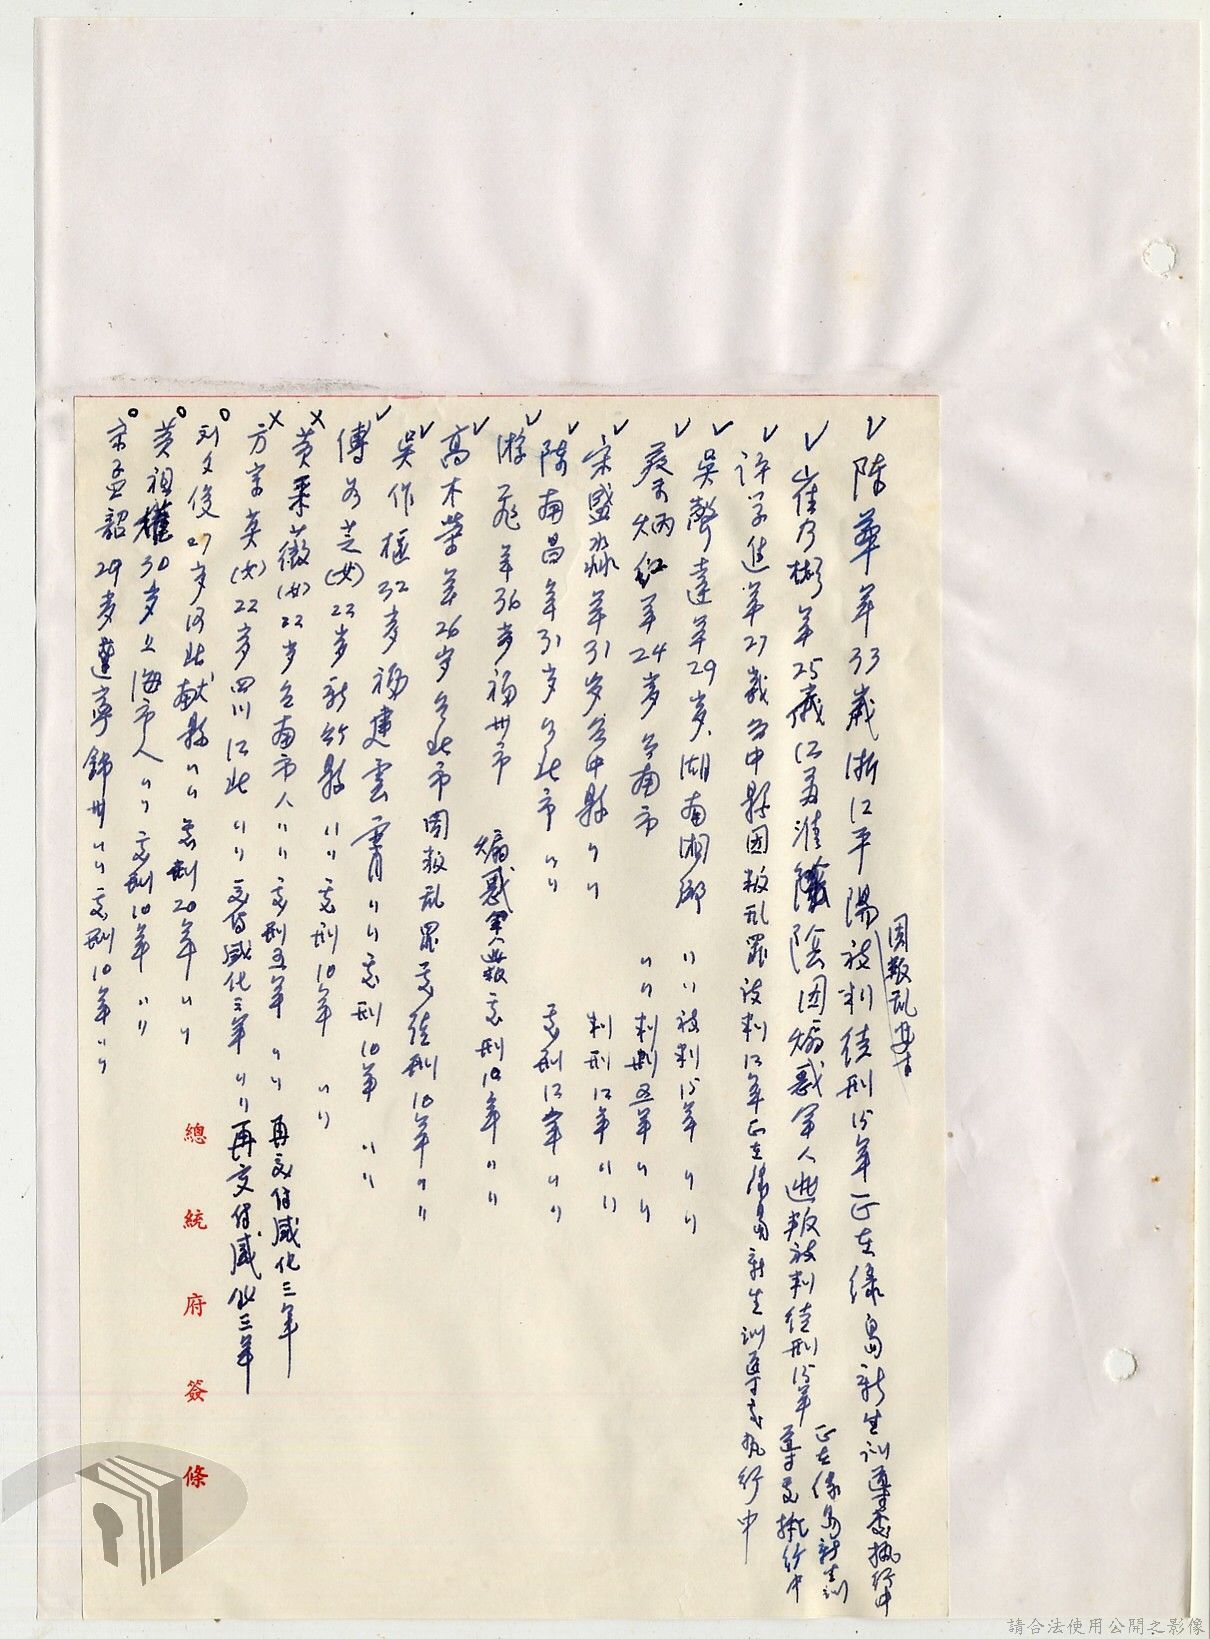 ∨ 陳華年33歲浙江平陽被判徒刑15年正在綠島新生訓導處執行中
因叛乱
∨ 崔乃彬年25歲江苏淮陰因煽惑军人逃叛被判徒刑15年
正在綠島新生訓
導處執行中
∨ 許学進年27歲台中縣因叛乱罪被判12年正在綠島新生訓導處執行中
∨ 吳聲達年29歲湖南湘鄉 〃〃被判15年 〃〃
∨ 蔡炳红年24歲台南市 〃〃判刑五年 〃〃
∨ 宋盛淼年31岁台中縣 〃〃 判刑12年 〃〃
∨ 陳南昌年31岁台北市 〃〃 處刑12年 〃〃
∨ 游飛年36岁福州市 煽惑军人逃叛處刑10年 〃〃
∨ 高木榮年26岁台北市因叛乱罪處徒刑10年 〃〃
∨ 吳作樞32岁福建雲霄 〃〃處刑10年 〃〃
∨ 傅如芝(女)23岁新竹縣 〃〃處刑10年 〃〃
× 黄采薇(女)22岁台南市人 〃〃處刑五年 〃〃 再交付感化三年
× 方宗英(女)22岁四川江北 〃〃交付感化三年 〃〃再交付感化三年
○ 刘文俊27岁河北献縣 〃〃處刑20年 〃〃
○ 黄祖權30岁上海市人 〃〃處刑10年 〃〃
○ 宋孟韶29岁遼寧錦州 〃〃處刑10年 〃〃
總統府簽條
請合法使用公開之影像